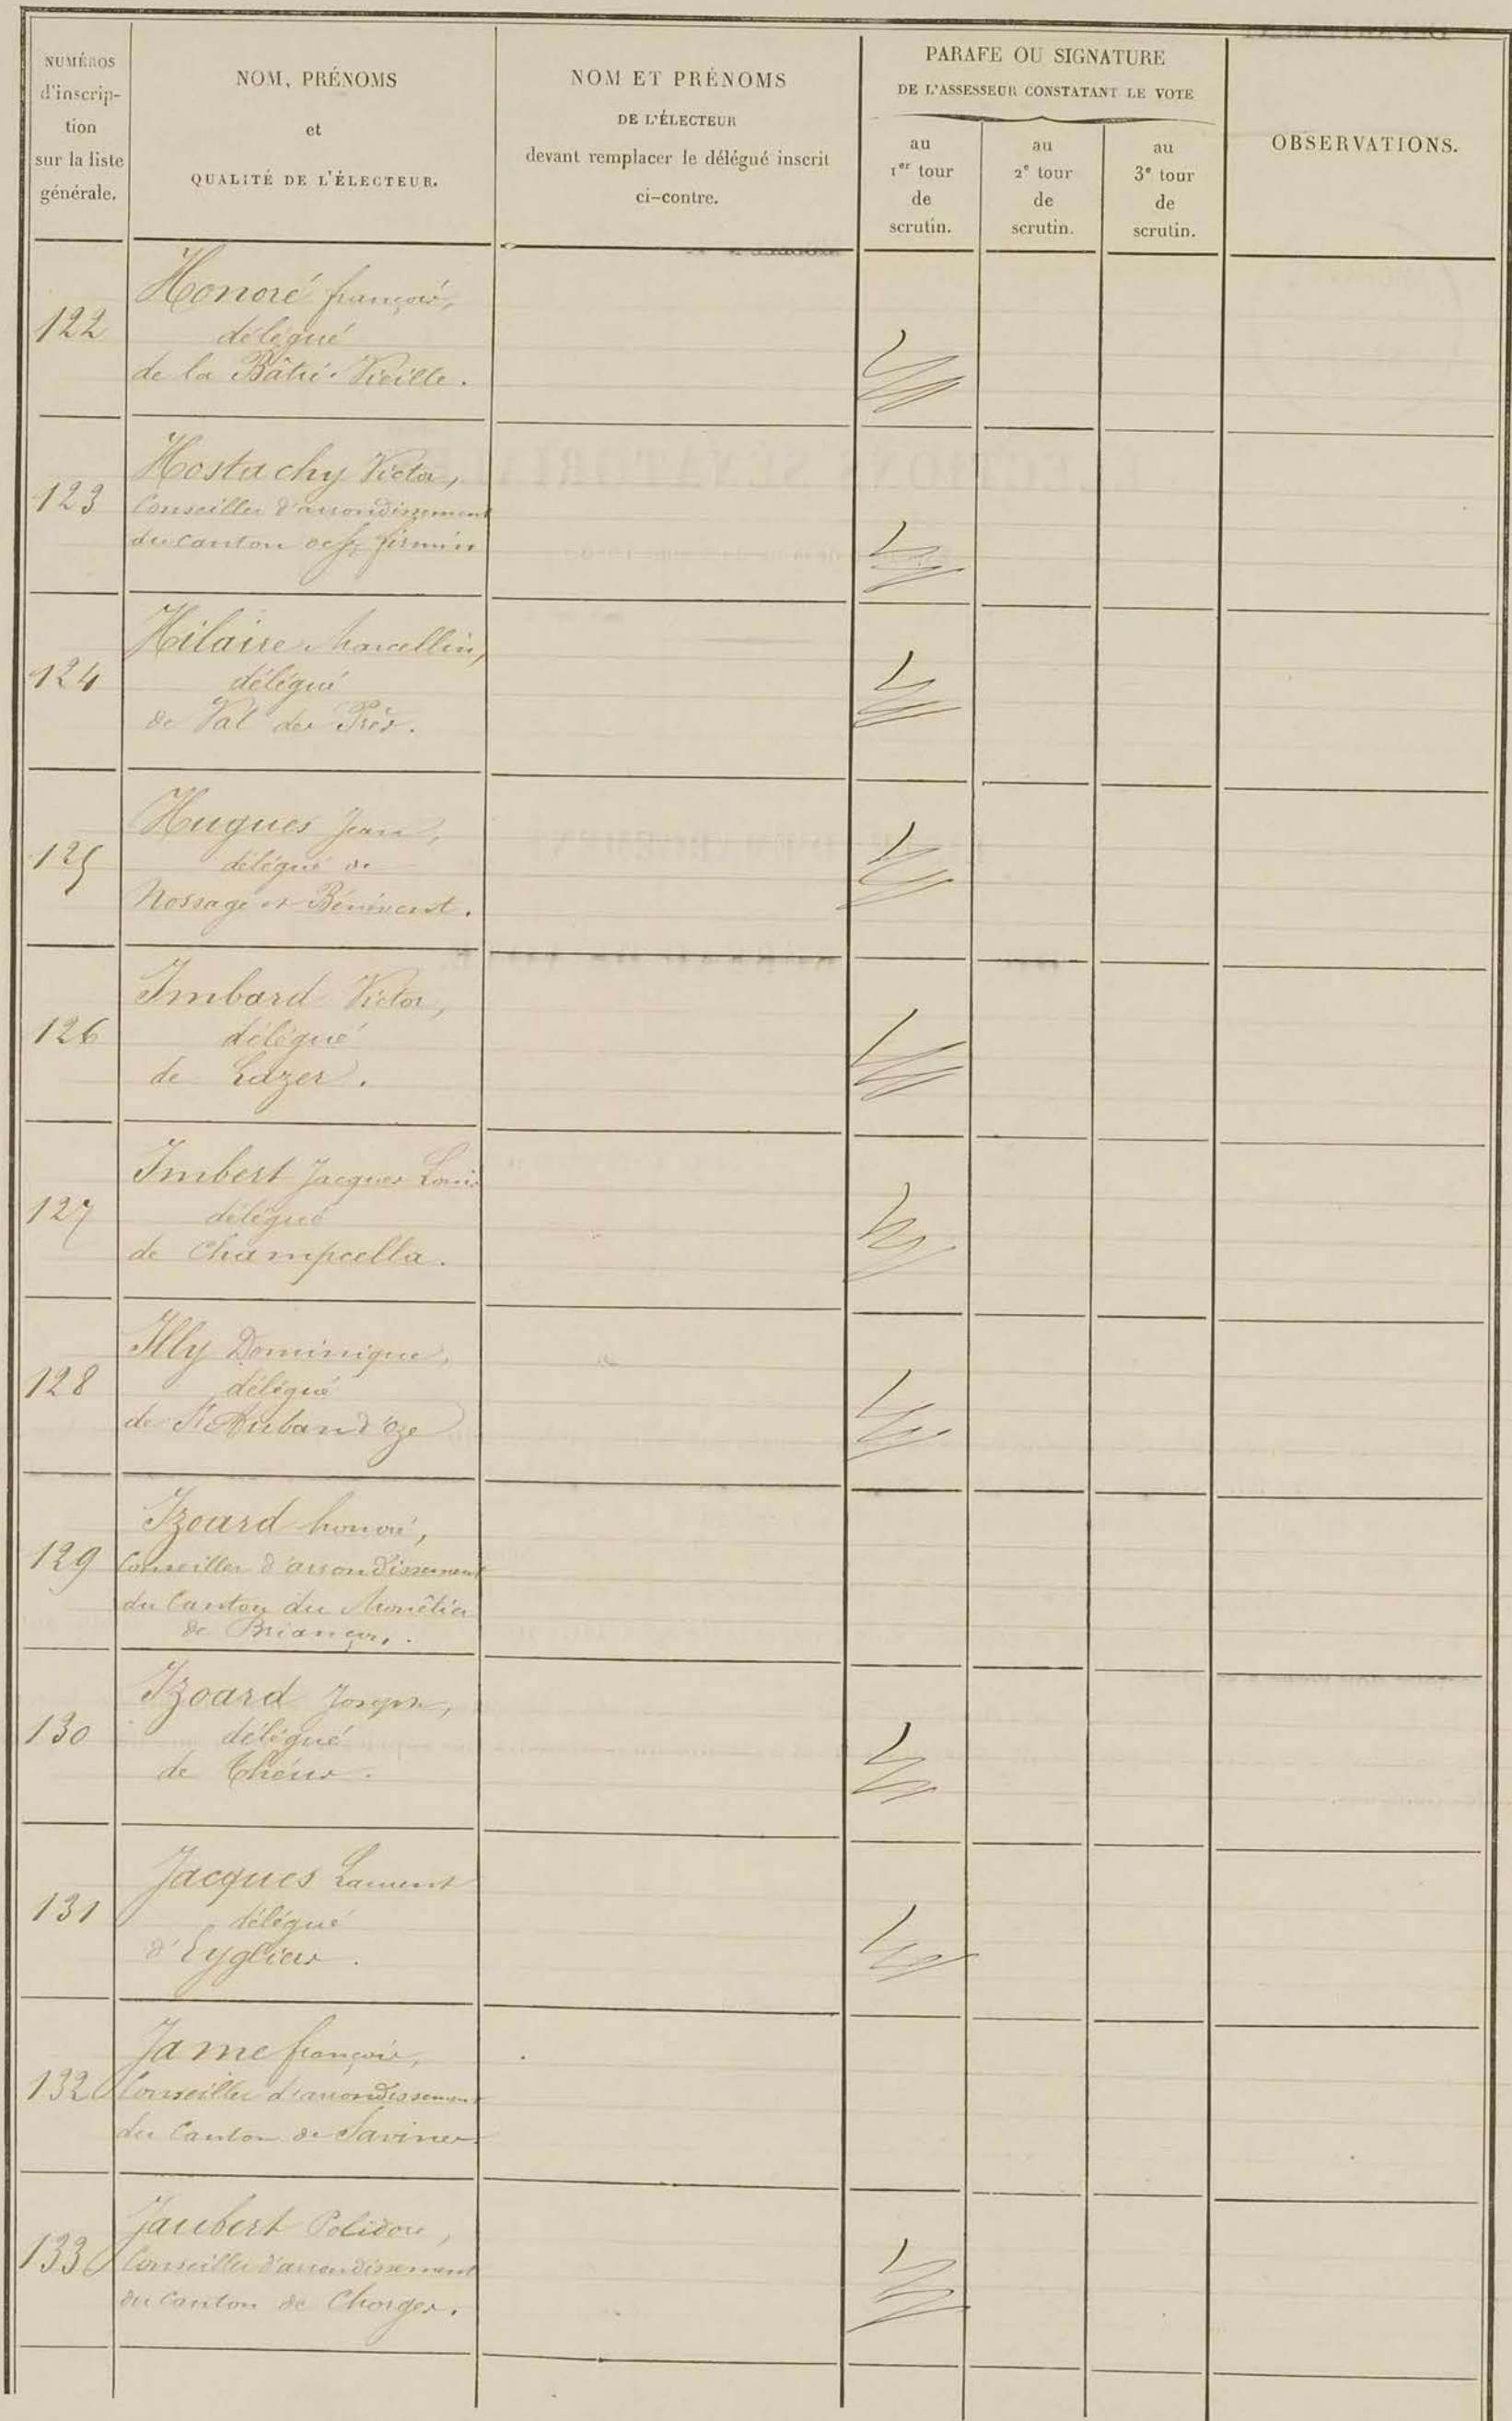 NUMÉROS
d'inscrip-
tion
sur la liste
générale.
NOM, PRÉNOMS
et
QUALITÉ DE L'ÉLECTEUR.
NOM ET PRÉNOMS
DE L'ÉLECTEUR
devant remplacer le délégué inscrit
ci-contre.
PARAFE OU SIGNATURE
DE L'ASSESSEUR CONSTATANT LE VOTE
au
1er tour
de
scrutin.
au
2e tour
de
scrutin.
au
3e tour
de
scrutin.
OBSERVATIONS.
122
Honoré françois,
délégué
de la Bâtie-Vieille.
123
Hostachy Victor,
Conseiller d'arrondissement
du canton de St firmin
124
Hilaire Marcellin,
délégué
de Val des Prés.
125
Hugues Jean,
délégué de
Nossage et Bénévent.
126
Imbard Victor,
délégué
de Lazer.
127
Imbert Jacques Louis
délégué
de Champcella.
128
Illy Dominique,
délégué
de St Auban d'Oze
129
Izoard honoré,
Conseiller d'arrondissement
du Canton du Monêtier
de Briançon.
130
Izoard Joseph,
délégué
de Théus.
131
Jacques Laurent
délégué
d'Eygliers.
132
Jame françois,
Conseiller d'arrondissement
du Canton de Savines.
133
Jaubert Polidore,
Conseiller d'arrondissement
du Canton de Chorges.